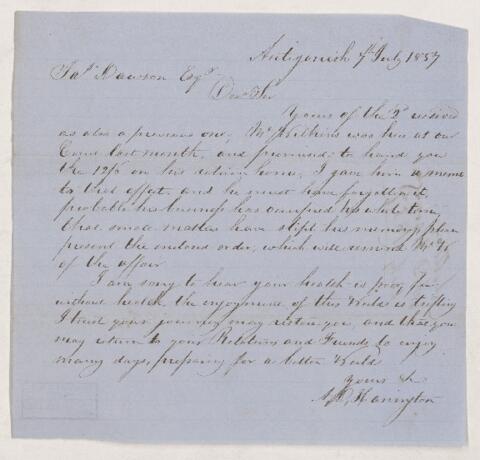 Antigonish 7th July 1857
Jas. Dawson Esqr.
Dear Sir
Yours of the 2d received
as also a previous one, Mr. Wilkins was here at our
Court last month, and promised to hand you
the 12/6 on his return home, I gave him a memo
to that effect, and he must have forgotten it,
probable his business has occupied his whole time
that small matters have slipt his memory, please
present the enclosed order, which will remind Mr W
of the affair
I am sorry to hear your health is poor, for
without health the enjoyment of this World is trifling
I trust your journey may restore you, and that you
may return to your Relations and Friends to enjoy
many days, preparing for a better World
Yours &c
Harrington